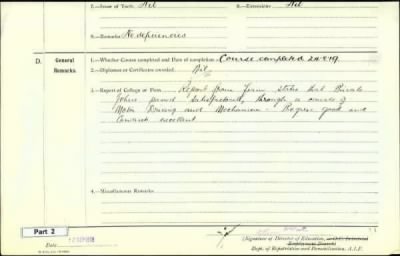 7.—Issue of Tools Nil 8.—Extension Nil
9.—Remarks No deficiencies
D. General Remarks. 1.—Whether Course completed and Date of completion Course completed
2.—Diplomas or Certificates awarded Nil
3.—Report of College or Firm Report from Firm states that Private
Johns passed satisfactorily through a course of
Motor Driving and Mechanism. Progress good and
Conduct excellent
4.—Miscellaneous Remarks
Part 2
(Signature of Director of Education,
Dept. of Repatriation and Demobilization, A.I.F.